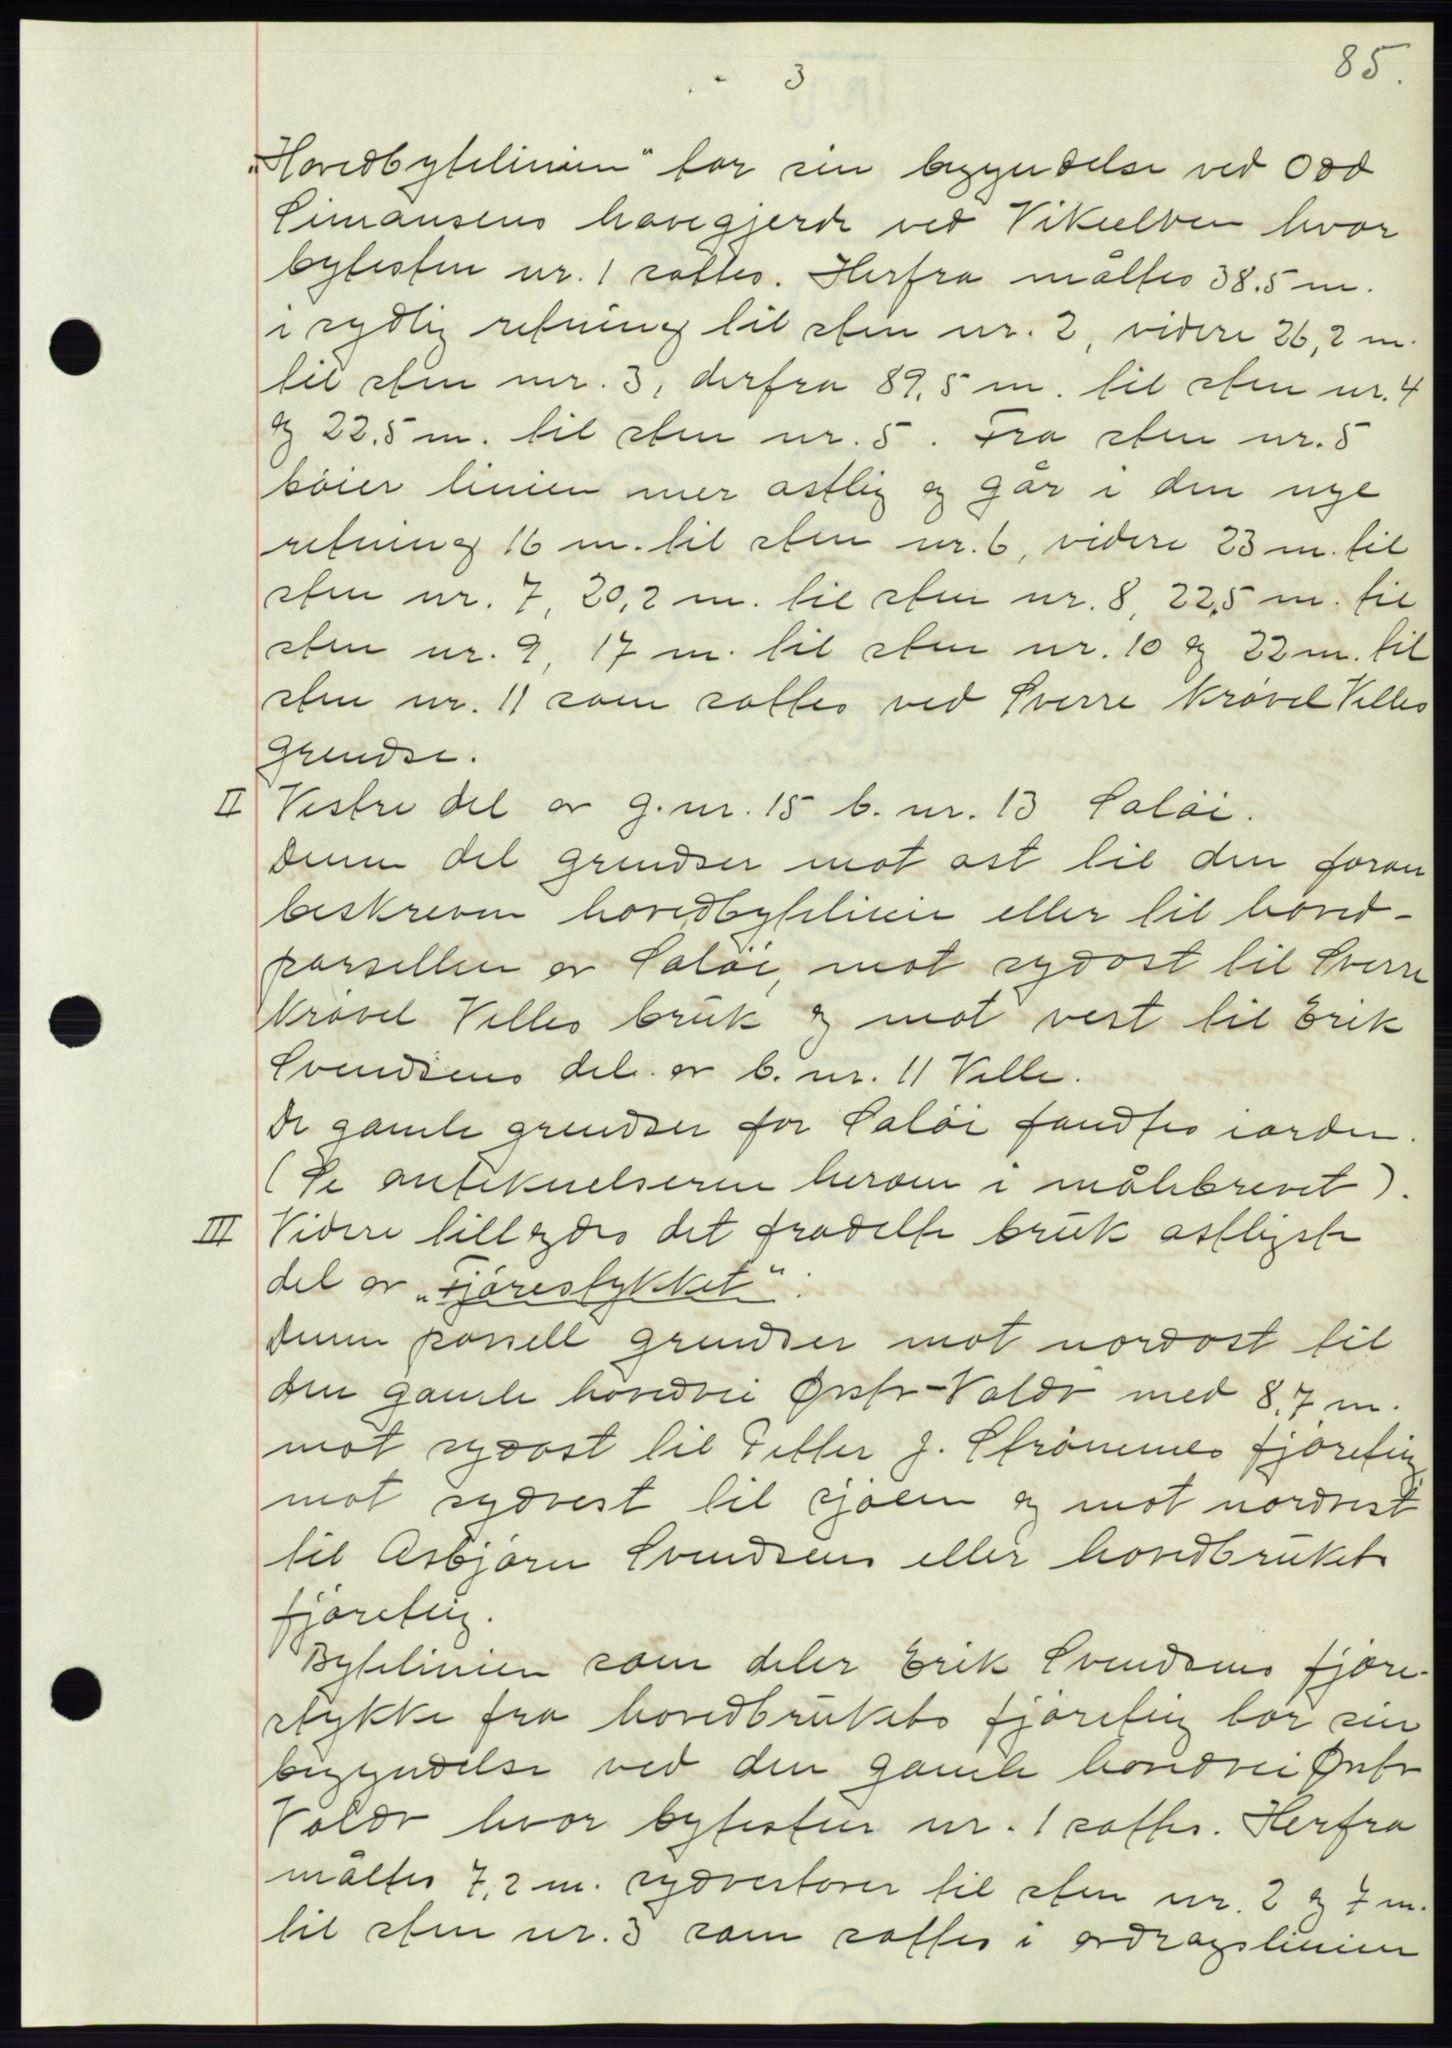 85.
- 3
"Hovedbytelinien" tar sin begyndelse ved Odd
Simonsens havegjerde ved Vikeelven hvor
bytesten nr. 1 sattes. Herfra måltes 38.5 m.
i sydlig retning til sten nr. 2, videre 26,2 m.
til sten nr. 3, derfra 89,5 m. til sten nr. 4
og 22.5 m. til sten nr. 5. Fra sten nr. 5
bøier linien mer østlig og går i den nye
retning 16 m. til sten nr. 6, videre 23 m. til
sten nr. 7, 20,2 m. til sten nr. 8, 22,5 m. til
sten nr. 9, 17 m. til sten nr. 10 og 22 m. til
sten nr. 11 som sattes ved Sverre Krøvel Velles
grendse.
II Vestre del av g. nr. 15 b. nr. 13 Saløi.
Denne del grendser mot øst til den foran
beskreven hovedbytelinie eller til hoved-
parsellen av Saløi, mot sydøst til Sverre
Krøvel Velles bruk og mot vest til Erik
Svendsens del av b. nr. 11 Velle.
De gamle grendser for Saløi fandtes iorden.
(Se anteknelserne herom i målebrevet).
III Videre tillægdes det fradelte bruk østligste
del av "Fjørestykket":
Denne parsell grendser mot nordøst til
den gamle hovedvei Ørsta-Volda med 8,7 m.
mot sydøst til Petter J. Strømmes fjøreteig,
mot sydvest til sjøen og mot nordvest
til Asbjørn Svendsens eller hovedbrukets
fjøreteig.
Bytelinien som deler Erik Svendsens fjøre-
stykke fra hovedbrukets fjøreteig tar sin
begyndelse ved den gamle hovedvei Ørsta
Volda hvor bytesten nr. 1 sattes. Herfra
måltes 7,2 m. sydvestover til sten nr. 2 og 7 m.
til sten nr. 3 som sattes i avdragslinien